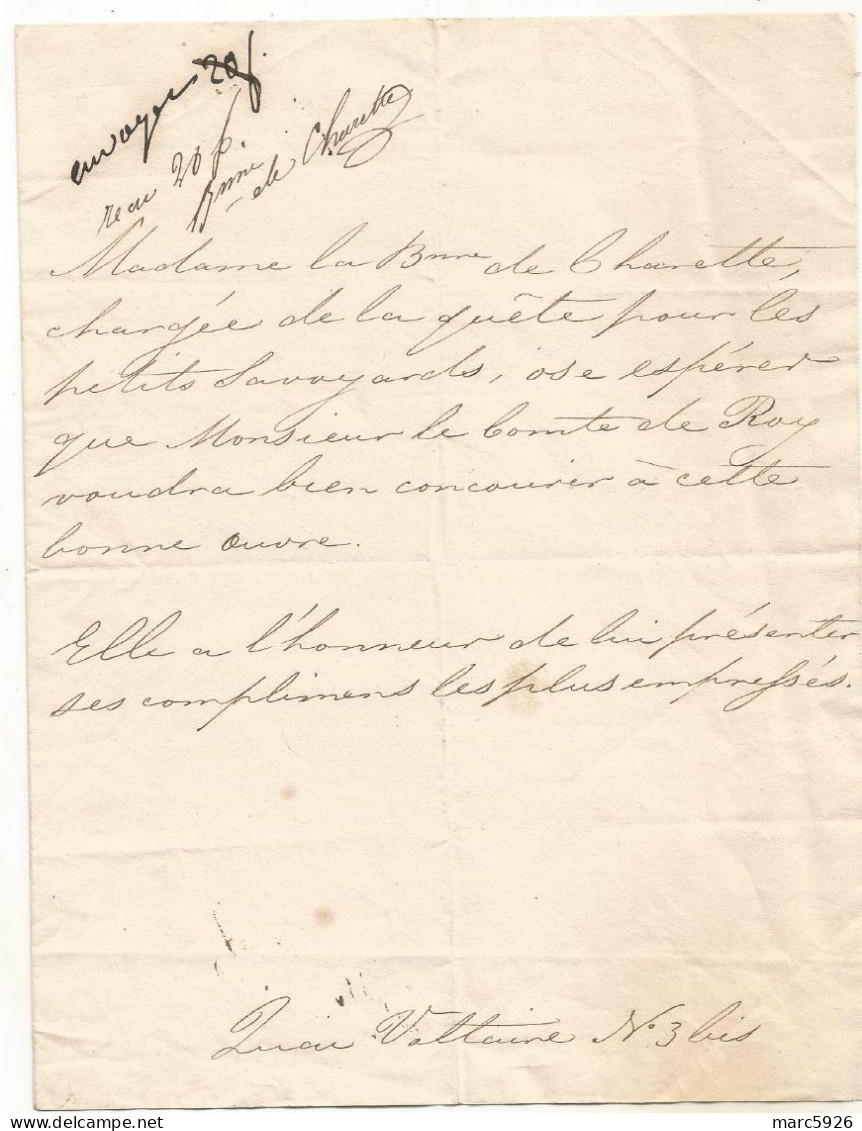 envoyer 20f.
recu 20 f.
Bnne
de Charette
Madame la Bnne de Charette,
chargée de la quête pour les
petits Savoyards, ose espérer
que Monsieur le Comte de Roy
voudra bien concourir à cette
bonne œuvre.
Elle a l'honneur de lui présenter
ses complimens les plus empressés.
Quai Voltaire No 3 bis
marc5926